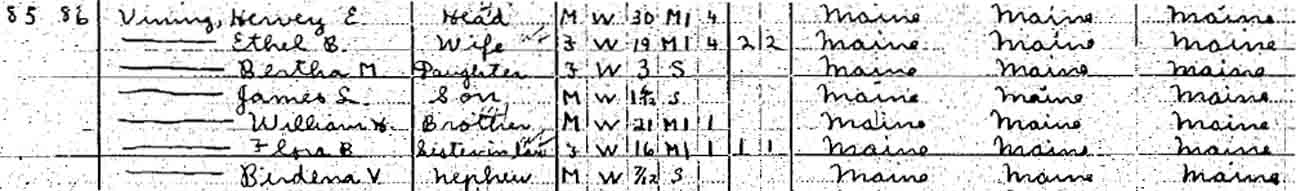 85 86 Vining, Hervey E. Head M W 30 M1 4 Maine Maine Maine
Ethel B. Wife F W 19 M1 4 2 2 Maine Maine Maine
Bertha M Daughter F W 3 S Maine Maine Maine
James L. Son M W S Maine Maine Maine
William H. Brother M W 21 M1 1 Maine Maine Maine
Flora B Sisterinlaw F W 16 M1 1 1 1 Maine Maine Maine
Berdena V nephew M W 7/12 S Maine Maine Maine